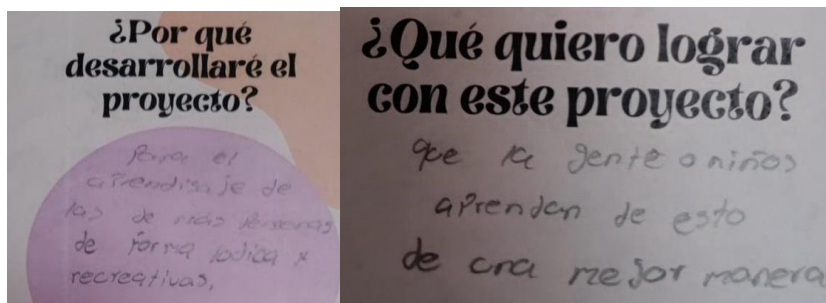 ¿Por qué
desarrollaré el
proyecto?
Para el
aprendisaje de
las de mas personas
de forma lodica y
recreativas.
¿Qué quiero lograr
con este proyecto?
que la gente o niños
aprendan de esto
de una mejor manera